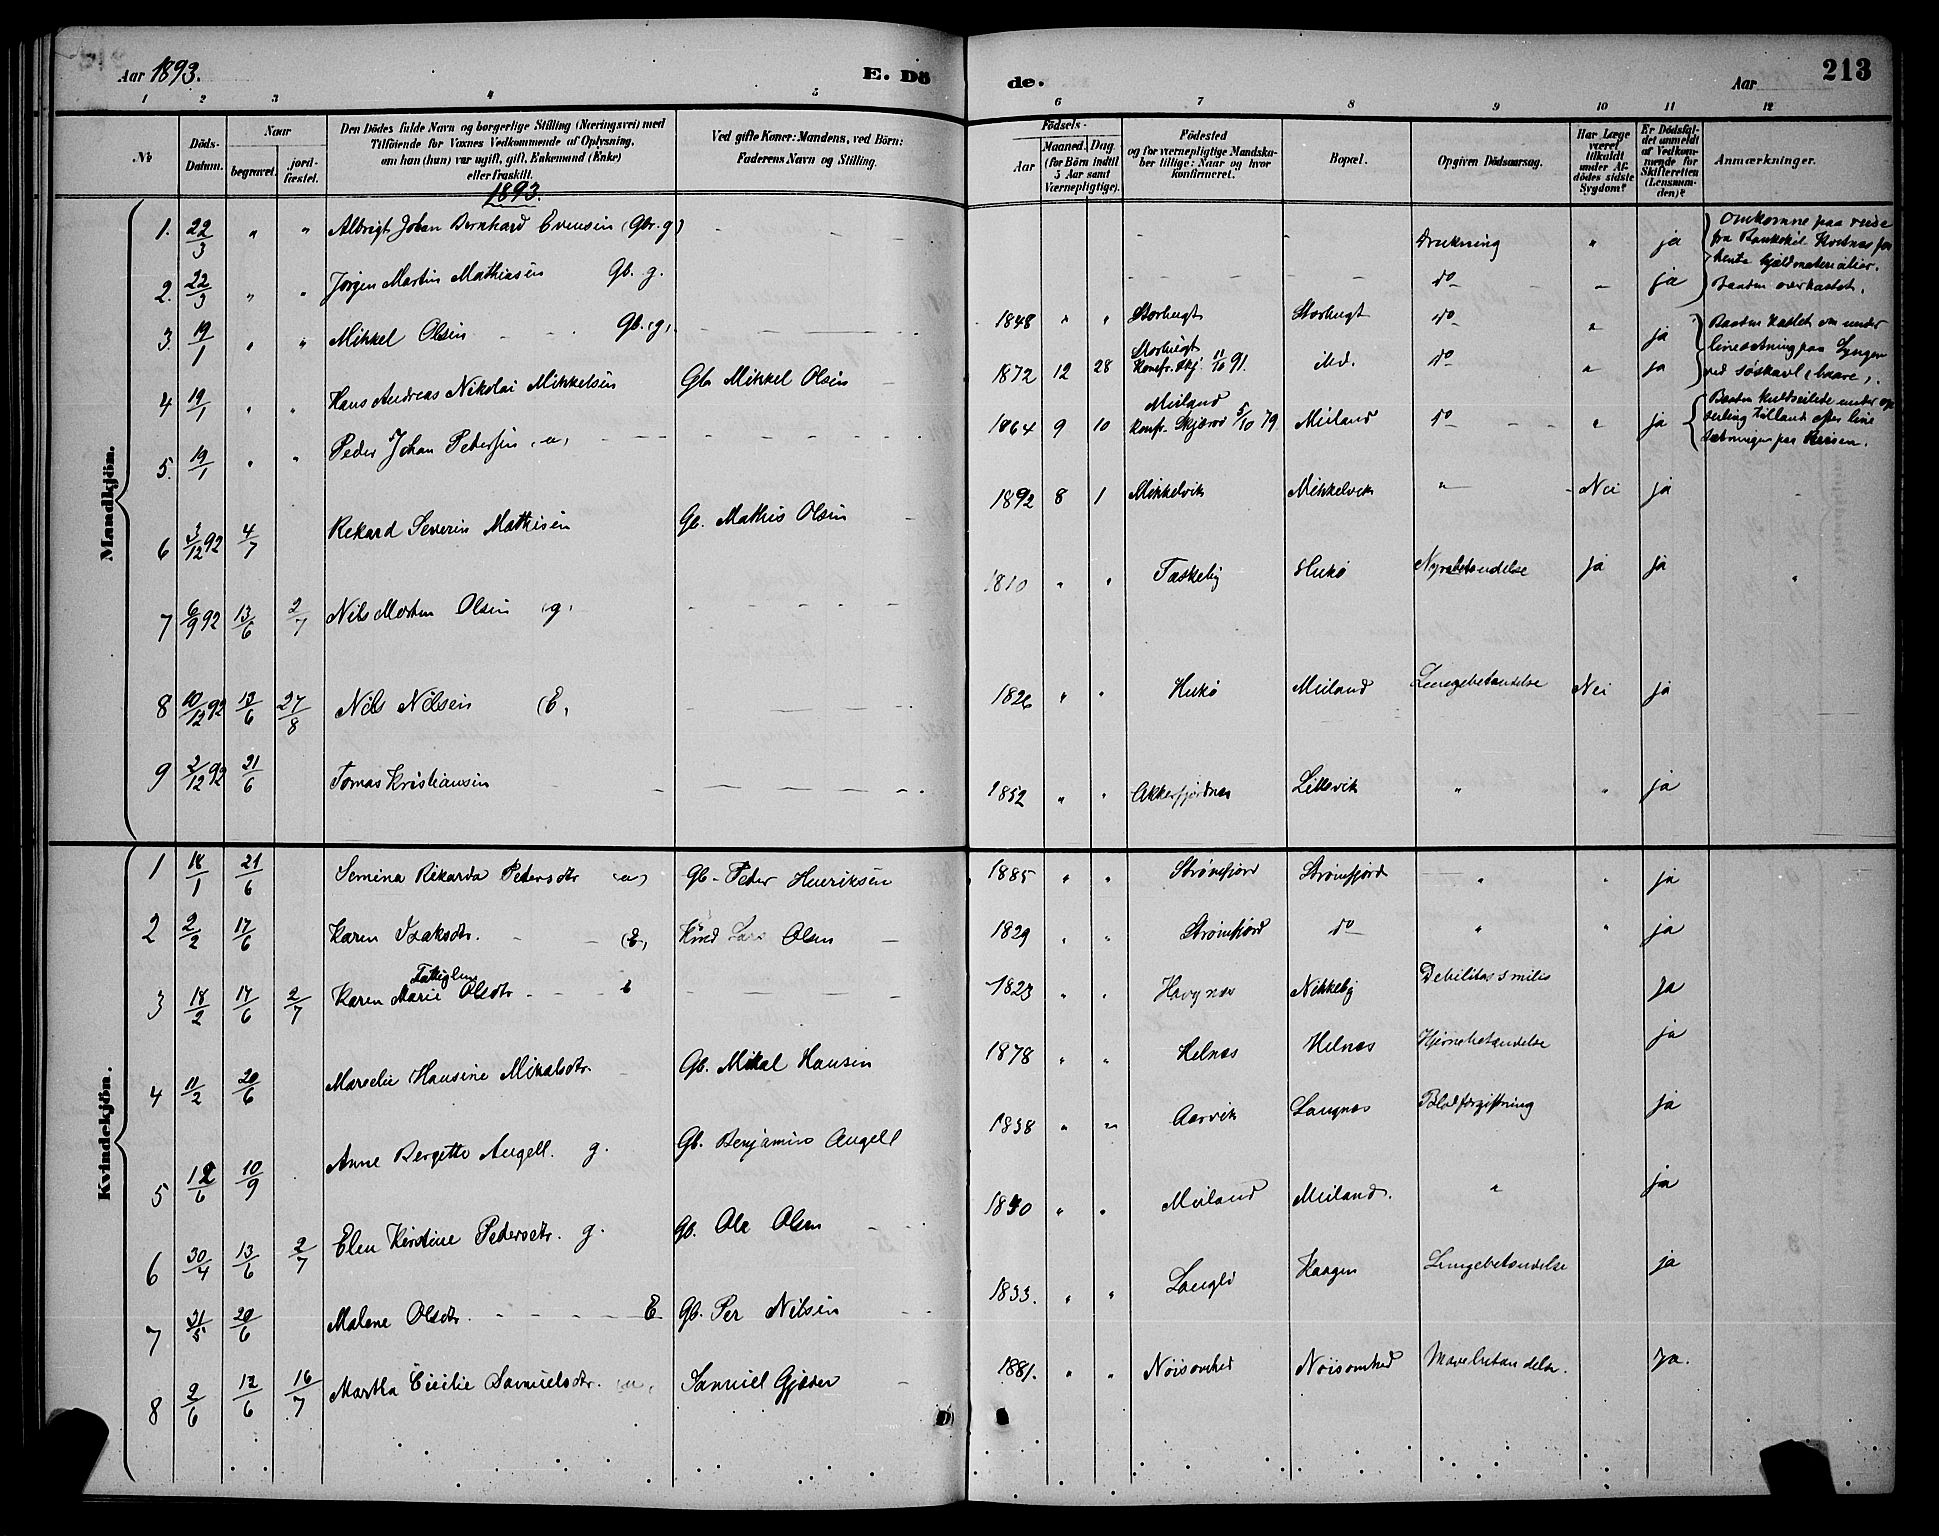 Aar 1893. E. Dö de. Aar 213
1 2 3 4 5 6 7 8 9 10 11 12
No
Döds-Datum.
Naar
begravet.
jord-fæstet.
Den Dödes fulde Navn og borgerlige Stilling (Næringsvei) med
Tilføiende for Voxnes Vedkommende af Oplysning,
om han (hun) var ugift, gift, Enkemand (Enke)
eller fraskilt.
1893.
Ved gifte Koner: Mandens, ved Börn:
Faderens Navn og Stilling.
Födsels-
Aar
Maaned. Dag.
(for Börn indtil
5 Aar samt
Værnepligtige).
Födested
og for værnepligtige Mandska-
ber tillige: Naar og hvor
konfirmeret.
Bopæl.
Opgiven Dödsaarsag.
Har Læge
været
tilkaldt
under Af-
dödes sidste
Sygdom?
Er Dödsfal-
det anmeldt
af Vedkom-
mende for
Skifteretten
(Lensman-
den)?
Anmærkninger.
Mandkjön.
1. 22/3 " " Albrigt Johan Bernhard Evensen (Gbr. g) Drukning " ja Omkomne paa reise
2. 22/3 " " Jørgen Martin Mathiasen Gb. g. do ja Baaden overkastet.
3. 19/1 " " Mikkel Olsen Gb. (g) 1848 " " Storbugt Storbugt do " ja Baaden kastet om under
4 19/1 " " Hans Andreas Nikolai Mikkelsen Gb Mikkel Olsen 1872 12 28 Storbugt Konfr. Skj. 11/10 91. ibd. do " ja
5. 19/1 " " Peder Johan Petersen (u) 1864 9 10 Meiland Konfr. Skjærvø 5/10 79 Meiland do " ja Baaden kuldseilede under
6 3/12 92 4/7 Rekard Severin Mathisen Gb. Mathis Olsen 1892 8 1 Mikkelvik Mikkelvik " Nei ja
7 6/9 92 13/6 2/7 Nils Morten Olsen (g) 1810 " " Taskeby Hukø Nyrebetændelse ja ja "
8 10/12 92 13/6 27/8 Nils Nilsen (E) 1826 " " Hukø Meiland Lungebetændelse Nei ja
9 2/12 92 21/6 Tomas Kristiansen 1852 " " Akkarfjordnes Lillevik " " ja
Kvindekjön.
1 18/1 21/6 Semina Rikarda Petersdtr (u) Gb. Peder Henriksen 1885 " " Strømfjord Strømfjord " " ja
2 2/2 17/6 Karen Isaksdtr. (E) Olsen 1829 " " Strømfjord do " " ja
3 18/2 17/6 2/7 Karen Marie Olsdtr E 1823 " " Havnnæs Nikkeby Debilitas senilis ja
4 11/2 20/6 Marselie Hansine Mikalsdtr. Gb. Mikal Hansen 1878 " " Helnæs Helnæs Hjernebetændelse ja
5 12/6 10/9 Anne Bergette Angell. g. Gb. Benjamin Angell 1838 " " Aarvik Langnæs Blodforgiftning ja
6 30/4 13/6 2/7 Elen Kirstine Pedersdtr. g. Gb. Ole Olsen 1830 " " Meiland Meiland. " ja
7 31/5 20/6 Malene Olsdtr. E Gb. Per Nilsen 1833. " " Langli Kaagen Lungebetændelse ja
8 2/6 12/6 16/7 Martha Cicilie Samuelsdtr. (u) Samuel Gjæver 1881. " " Nøisomhed Nøisomhed Mavebetændelse. ja.